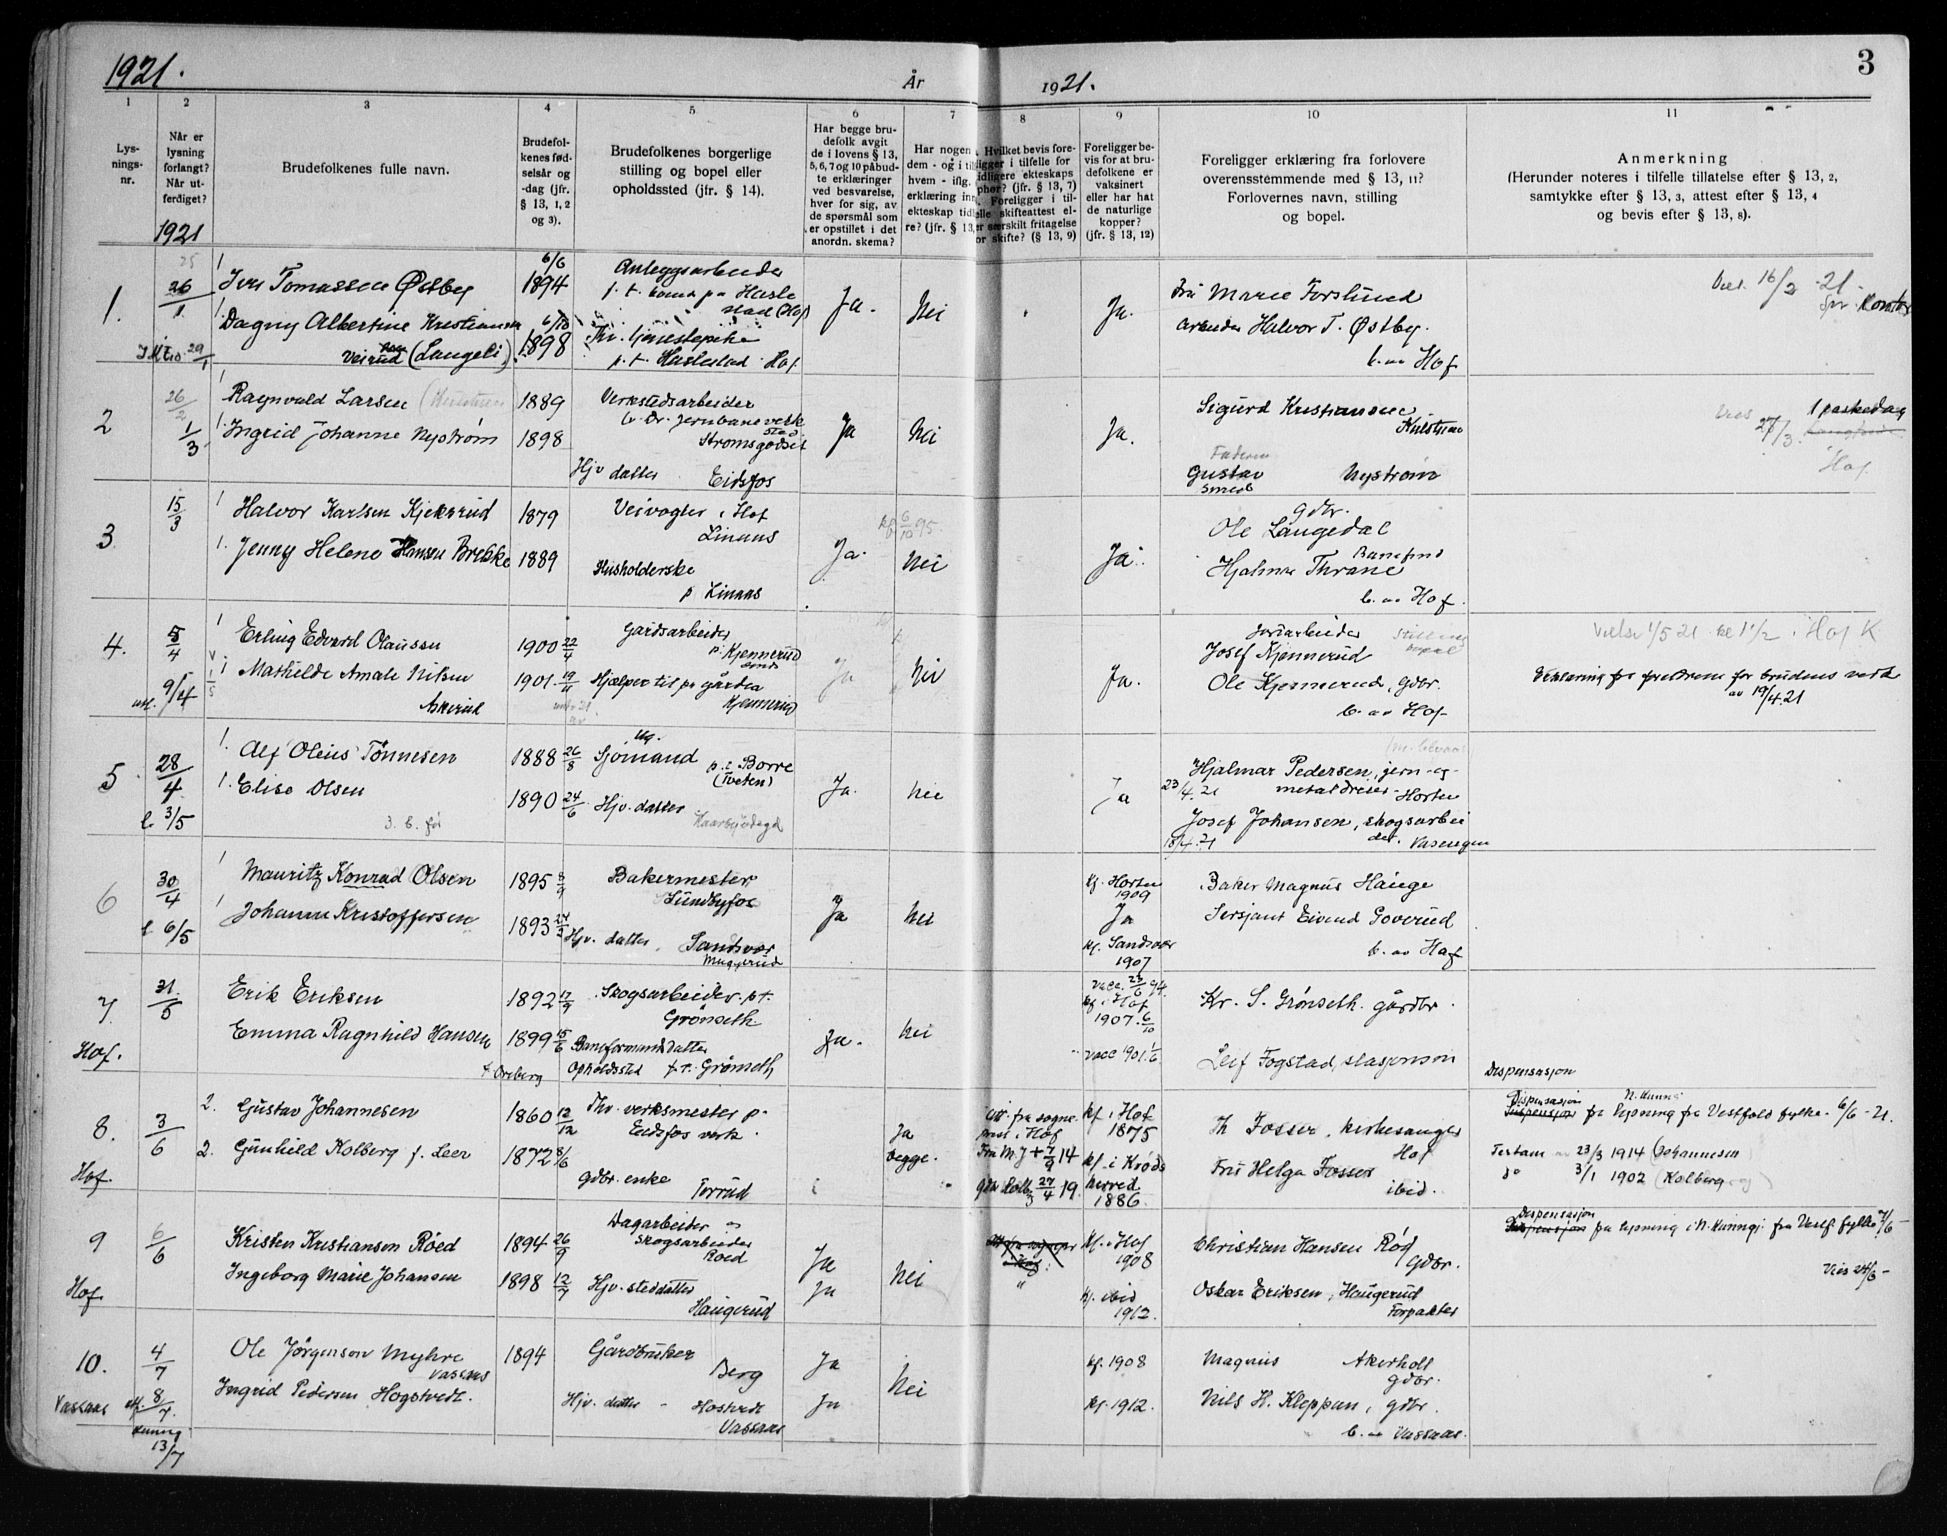 1921.
År
1921.
3
1
2
3
4
5
6
7
8
9
10
11
Lys-
nings-
nr.
Når er
lysning
forlangt?
Når ut-
ferdiget?
1921
Brudefolkenes fulle navn.
Brudefol-
kenes fød-
selsår og
-dag (jfr.
§ 13, 1, 2
og 3).
Brudefolkenes borgerlige
stilling og bopel eller
opholdssted (jfr. § 14).
Har begge bru-
defolk avgit
de i lovens § 13,
5, 6, 7 og 10 påbud-
te erklæringer
ved besvarelse,
hver for sig, av
de spørsmål som
er opstillet i det
anordn. skema?
Har nogen
dem - og i til
hvem - iflg.
erklæring inn
ekteskap tid
re? (jfr. § 13,
Hvilket bevis fore-
ligger i tilfelle for
idligere ekteskaps
phør? (jfr. § 13, 7)
Foreligger i til-
elle skifteattest el-
er særskilt fritagelse
or skifte? (§ 13, 9)
Foreligger be-
vis for at bru-
defolkene er
vaksinert
eller har hat
de naturlige
kopper?
(jfr. § 13, 12)
Foreligger erklæring fra forlovere
overensstemmende med § 13, 11?
Forlovernes navn, stilling
og bopel.
Anmerkning
(Herunder noteres i tilfelle tillatelse efter § 13, 2,
samtykke efter § 13, 3, attest efter § 13, 4
og bevis efter § 13, 8).
1.
26/1
Iver Tomassen Østby
6/6
1894
Anleggsarbeider
Dagny Albertine Kristiansen
Veirud (Langeli)
1898
p.t. Haslestad Hof
Ja.
Nei
Ja.
Fru Marie Forslund
Arbeider Halvor T. Østby.
b. av Hof
16/2 21
2
26/2
1/3
Ragnvald Larsen
1889
Verkstedsarbeider
Strømsgodset
Ingrid Johanne Nystrøm
1898
Hjv datter Eidsfos
Ja
Nei
Ja.
Sigurd Kristiansen
Faderen
Gustav Nystrøm
Smed
27/3.
1 paaskedag
Hof
3
15/3
Halvor Karlsen Kjekerud
1879
Veivogter i Hof
Linaas
Jenny Helene Hansen Brekke
1889
Husholderske
p Linaas
Ja.
6/10 95
Nei
Ja.
gdbr.
Ole Langedal
Hjalmar Thrane
b. av Hof.
4.
5/4
9/4
Erling Edvard Olaussen
1900 22/4
Gardsarbeider
p. Kjennerud
Mathilde Amale Nilsen
Askerud
1901 19/11
Hjælper til pa gården
Kjennerud
Ja
Nei
Ja.
Josef Kjennerud
Ole Kjennerud, gdbr.
b. av Hof
Vielse 1/5 21 kl 1 1/2 i Hof K
Erklæring fra foreldrene for brudens vedk
av 19/4.21
5
28/4
l. 3/5
Alf Oleus Tønnesen
1888 26/8
Ug.
Sjømand
p.t. Borre
(Tveten)
Elise Olsen
3. b. før
1890 24/6
Hjv. datter
Ja.
Nei
Ja
Hjalmar Pedersen, jern- og
metaldreier Horten
23/4. 21
Josef Johansen, skogsarbei
der.
18/4. 21
6
30/4
l 6/5
Mauritz Konrad Olsen
1895 3/9
Bakermester
Sundbyfos
Johanne Kristoffersen
1893
Hjv. datter. Sandsvær
Muggerud
Ja
Nei
kf. Horten
1909
Ja
kf. Sandsvær
1907
Baker Magnus Hauge
Sersjant Eivind Goverud
b. av Hof
7.
Hof.
31/5
Erik Eriksen
1892 17/9
Skogsarbeider p.t.
Grønseth
Emma Ragnhild Hansen
f Oreberg
1899 15/6
Baneformandsdatter
Opholdssted p.t. Grønseth
Ja.
Nei
vacc. 23/6 94
kf. i Hof
1907. 6/10
vacc 1901 1/6
Kr. S. Grønseth. gårdbr.
Leif Fogstad, stasjonsm
Dispensasjon
8.
Hof.
3/6
2. Gustav Johannesen
1860 12/12
Thv. verksmester p.
Eidsfos verk.
2. Gunhild Kolberg f. Leer
1872 8/6
gdbr. enke
Torrud
Ja
begge.
Att. fra sogne
prest i Hof
Fra M.J + 7/9 14
gdbr Kolbg 27/4 19.
kf. i Hof
1875
kf. i Krøds
herred
1886.
Th Fosser, kirkesanger
Hof
Fru Helga Fosser
ibid.
Dispensasjon N. Kunng
fr lysning fra Vestfold fylke. 6/6 - 21.
Testam 23/3 1914 (Johannesen
do 3/1 1902 (Kolberg
9
Hof
6/6
Kristen Kristiansen Røed
1894 26/9
Dagarbeider og
Skogsarbeider
Røed
Ingeborg Marie Johansen
1898 12/7
Hjv. steddatter
Haugerud
Ja
Ja
Nei
kf. i Hof
1908
kf. ibid
1912.
Christian Hansen Rød
Gdbr.
Oskar Eriksen, Haugerud
Forpakter
Dispensasjon
pa lysning i N. Kunngj. fra Vestf. fylke 7/6 -
Vies 24/6 -
10.
Vassaas
4/7
8/7.
13/7
Ole Jørgensen Myhre
Vassaas
1894
Gårdbruker
Berg
Ingrid Pedersen Hogstvedt.
Hjv. datter -
Vassaas
Ja
Ja
Nei
kf. 1908
kf. 1912.
Magnus Akerholt
gdbr.
Nils H. Kleppan, gdbr.
b. av Vassaas.